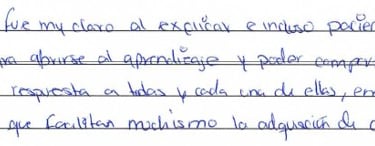 fue my claro al explicar e incluso pacie
abrirse al aprendizaje y poder
respuesta a todas y cada una de ellas, en
que facilitan muchismo la adquisición de c